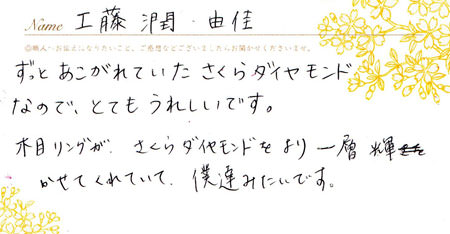 Name 工藤 潤・由佳
◎職人へお伝えになりたいこと、ご感想などございましたらお聞かせくださいませ。
ずっとあこがれていたさくらダイヤモンド
なので、とてもうれしいです。
木目リングが、さくらダイヤモンドをより一層 輝
かせてくれていて、僕達みたいです。